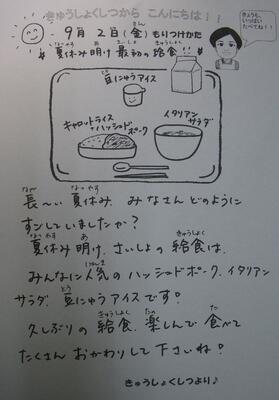 きゅうしょくしつから こんにちは！！
きょうも、いっぱいたべてね！！
9月2日(金)もりつけかた
夏休み明け 最初の給食!!
豆にゅうアイス
イタリアンサラダ
キャロットライス
ハッシュドポーク
長〜い 夏休み、みなさん どのように
すごしていましたか？
夏休み明け、さいしょの 給食は、
みんなに人気の ハッシュドポーク、イタリアン
サラダ、豆にゅうアイスです！
久しぶりの 給食、楽しんで 食べて
たくさん おかわりして下さいね！
きゅうしょくしつより♪